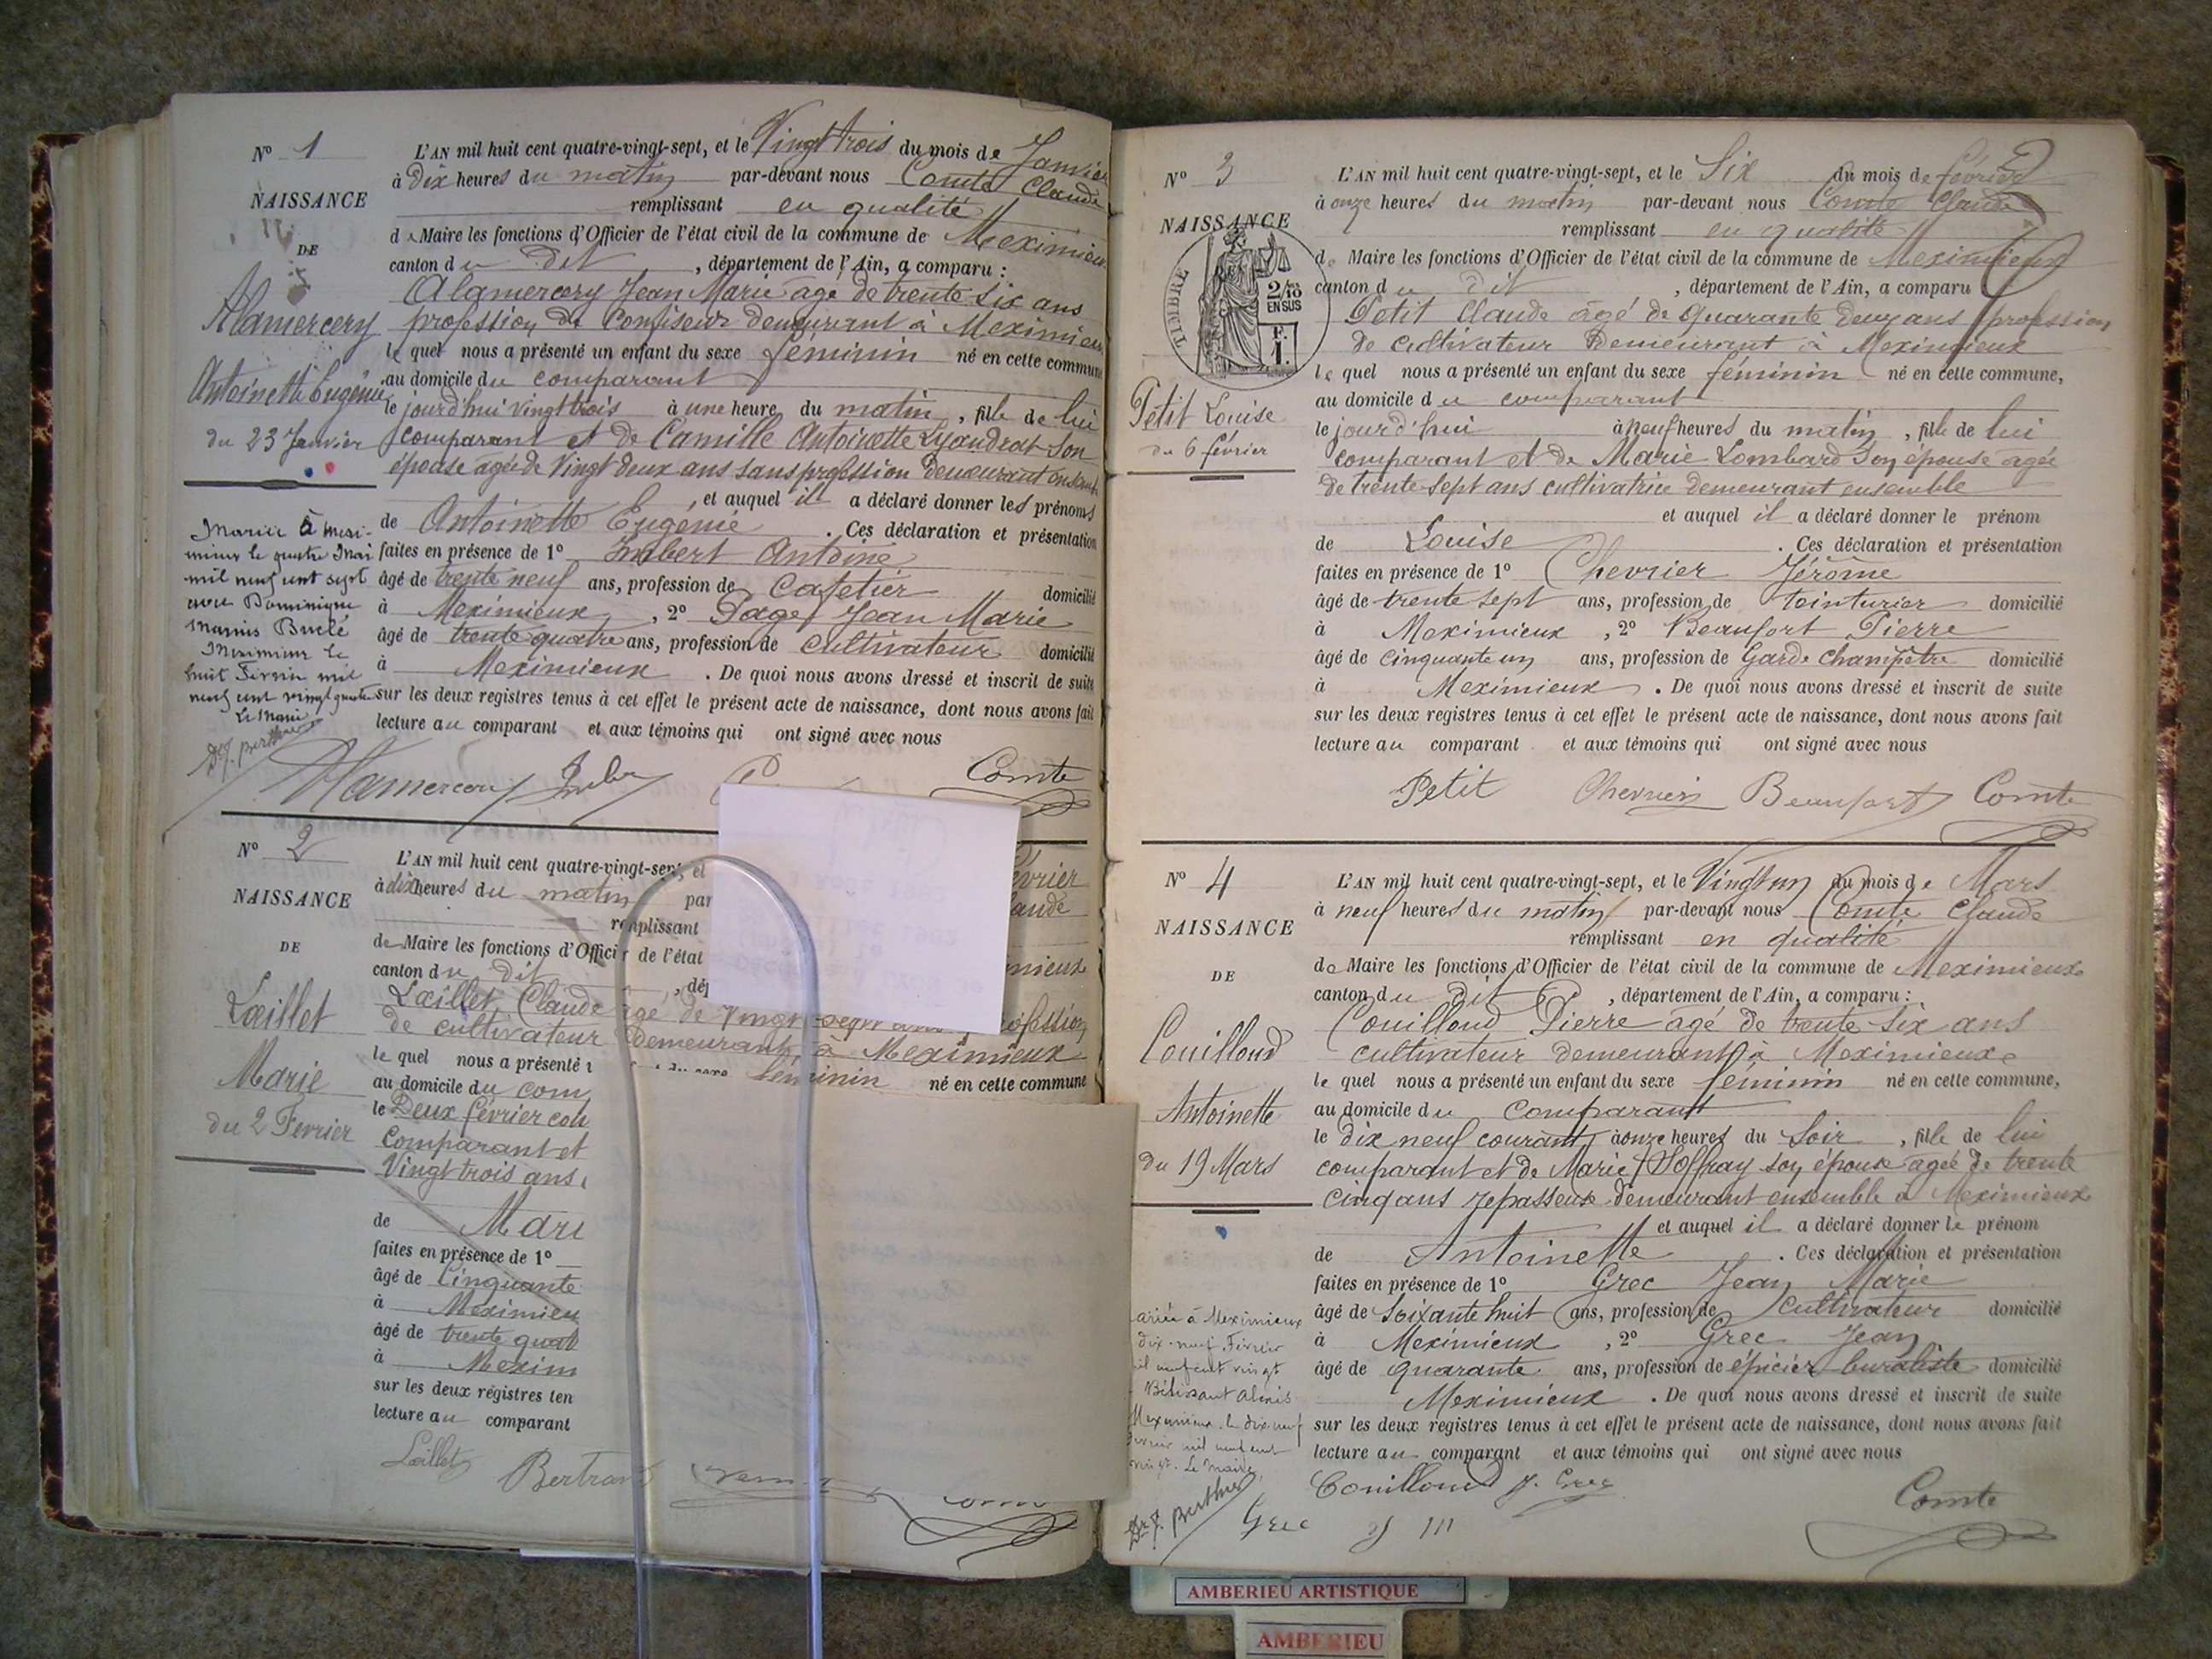 Nº 1
NAISSANCE
DE
Alamercery
Antoinette Eugénie
du 23 Janvier
Mariée à Mexi-
mieux le quatre Mai
mil neuf cent sept
avec Dominique
Marius Buclé
Meximieux le
huit Février mil
neuf cent vingt quatre
Le Maire
Dr J. Berthier
L'AN mil huit cent quatre-vingt-sept, et le Vingt trois du mois de Janvier
à Dix heures du matin par-devant nous Comte Claude
remplissant en qualité
de Maire les fonctions d'Officier de l'état civil de la commune de Meximieux
canton du dit, département de l'Ain, a comparu :
Alamercery Jean Marie âgé de trente six ans
profession de Confiseur demeurant à Meximieux
le quel nous a présenté un enfant du sexe féminin né en cette commune
au domicile du comparant
le jourd'hui vingt trois à une heure du matin, fille de lui
comparant et de Camille Antoinette Lyaudrat son
épouse âgée de Vingt deux ans sans profession demeurant ensemble
, et auquel il a déclaré donner les prénoms
de Antoinette Eugénie . Ces déclaration et présentation
faites en présence de 1º Imbert Antoine
âgé de trente neuf ans, profession de Cafetier domicilié
à Meximieux, 2º Page Jean Marie
âgé de trente quatre ans, profession de Cultivateur domicilié
à Meximieux . De quoi nous avons dressé et inscrit de suite
sur les deux registres tenus à cet effet le présent acte de naissance, dont nous avons fait
lecture au comparant et aux témoins qui ont signé avec nous
Alamercery Imber P Comte
Nº 2
NAISSANCE
DE
Lœillet
Marie
du 2 Fevrier
L'AN mil huit cent quatre-vingt-sept, et évrier
à dix heures du matin par aude
remplissant
de Maire les fonctions d'Officier de l'état mieux
canton du dit, dép
Lœillet Claude âgé de Vingt sept ans profession
de cultivateur Demeurant à Meximieux
le quel nous a présenté du sexe féminin né en cette commune
au domicile du com
le Deux février cou
comparant et
Vingt trois ans
de Mari
faites en présence de 1º
âgé de Cinquante
à Meximieu
âgé de trente quat
à Mexim
sur les deux régistres ten
lecture au comparant
Lœillet Bertrand
Nº 3
NAISSANCE
TIMBRE
2/10
EN SUS
F.
1.
Petit Louise
du 6 février
L'AN mil huit cent quatre-vingt-sept, et le Six du mois de février
à onze heures du matin par-devant nous Comte Claude
remplissant en qualité
de Maire les fonctions d'Officier de l'état civil de la commune de Meximieux
canton du dit, département de l'Ain, a comparu
Petit Claude âgé de quarante deux ans profession
de cultivateur Demeurant à Meximieux
le quel nous a présenté un enfant du sexe féminin né en cette commune,
au domicile du comparant
le jourd'hui à neuf heures du matin, fille de lui
comparant et de Marie Lombard son épouse âgée
de trente sept ans cultivatrice demeurant ensemble
et auquel il a déclaré donner le prénom
de Louise . Ces déclaration et présentation
faites en présence de 1º Chevrier Jérôme
âgé de trente sept ans, profession de teinturier domicilié
à Meximieux, 2º Beaufort Pierre
âgé de cinquante un ans, profession de Garde champêtre domicilié
à Meximieux . De quoi nous avons dressé et inscrit de suite
sur les deux registres tenus à cet effet le présent acte de naissance, dont nous avons fait
lecture au comparant et aux témoins qui ont signé avec nous
Petit Chevrier Beaufort Comte
Nº 4
NAISSANCE
DE
Couilloud
Antoinette
du 19 Mars
ariée à Meximieux
dix-neuf Février
il neuf cent vingt
Bélissant Alexis
Meximieux le dix-neuf
Février mil neuf cent
vingt. Le Maire,
Dr J. Berthier
L'AN mil huit cent quatre-vingt-sept, et le Vingt un du mois de Mars
à neuf heures du matin par-devant nous Comte Claude
remplissant en qualité
de Maire les fonctions d'Officier de l'état civil de la commune de Meximieux
canton du dit, département de l'Ain, a comparu :
Couilloud Pierre âgé de trente six ans
cultivateur demeurant à Meximieux
le quel nous a présenté un enfant du sexe féminin né en cette commune,
au domicile du comparant
le dix neuf courant, à onze heures du Soir, fille de lui
comparant et de Marie Soffray son épouse âgée de trente
cinq ans repasseuse demeurant ensemble à Meximieux
et auquel il a déclaré donner le prénom
de Antoinette . Ces déclaration et présentation
faites en présence de 1º Grec Jean Marie
âgé de Soixante huit ans, profession de cultivateur domicilié
à Meximieux, 2º Grec Jean
âgé de quarante ans, profession de épicier buraliste domicilié
Meximieux . De quoi nous avons dressé et inscrit de suite
sur les deux registres tenus à cet effet le présent acte de naissance, dont nous avons fait
lecture au comparant et aux témoins qui ont signé avec nous
Couilloud J. Grec
Grec J m Comte
AMBERIEU ARTISTIQUE
AMBERIEU